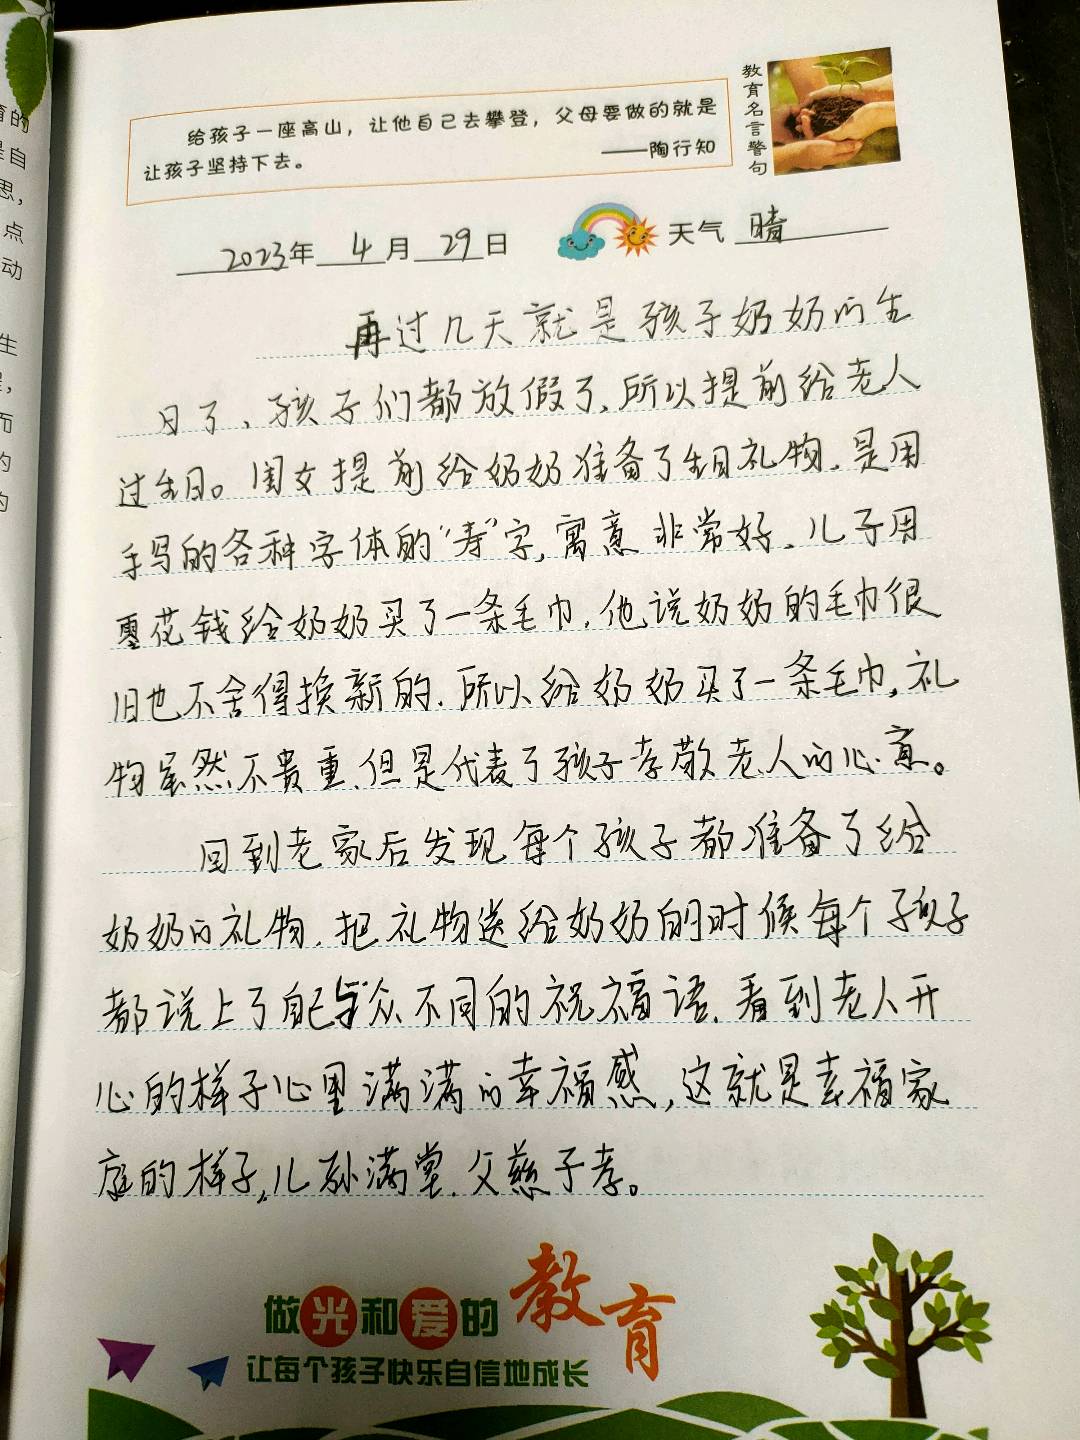 给孩子一座高山，让他自己去攀登，父母要做的就是
让孩子坚持下去。 ——陶行知
教育名言警句
2023年 4月 29日 天气 晴
再过几天就是孩子奶奶的生
日了、孩子们都放假了、所以提前给老人
过生日。闺女提前给奶奶准备了生日礼物、是用
手写的各种字体的“寿”字，寓意非常好、儿子用
零花钱给奶奶买了一条毛巾，他说奶奶的毛巾很
旧也不舍得换新的、所以给奶奶买了一条毛巾，礼
物虽然不贵重、但是代表了孩子孝敬老人的心意。
回到老家后发现每个孩子都准备了给
奶奶的礼物、把礼物送给奶奶的时候每个孩子
都说上了自己与众不同的祝福语、看到老人开
心的样子心里满满的幸福感，这就是幸福家
庭的样子，儿孙满堂、父慈子孝。
做光和爱的教育
让每个孩子快乐自信地成长
育的
是自
思，
点
动
生
而
的